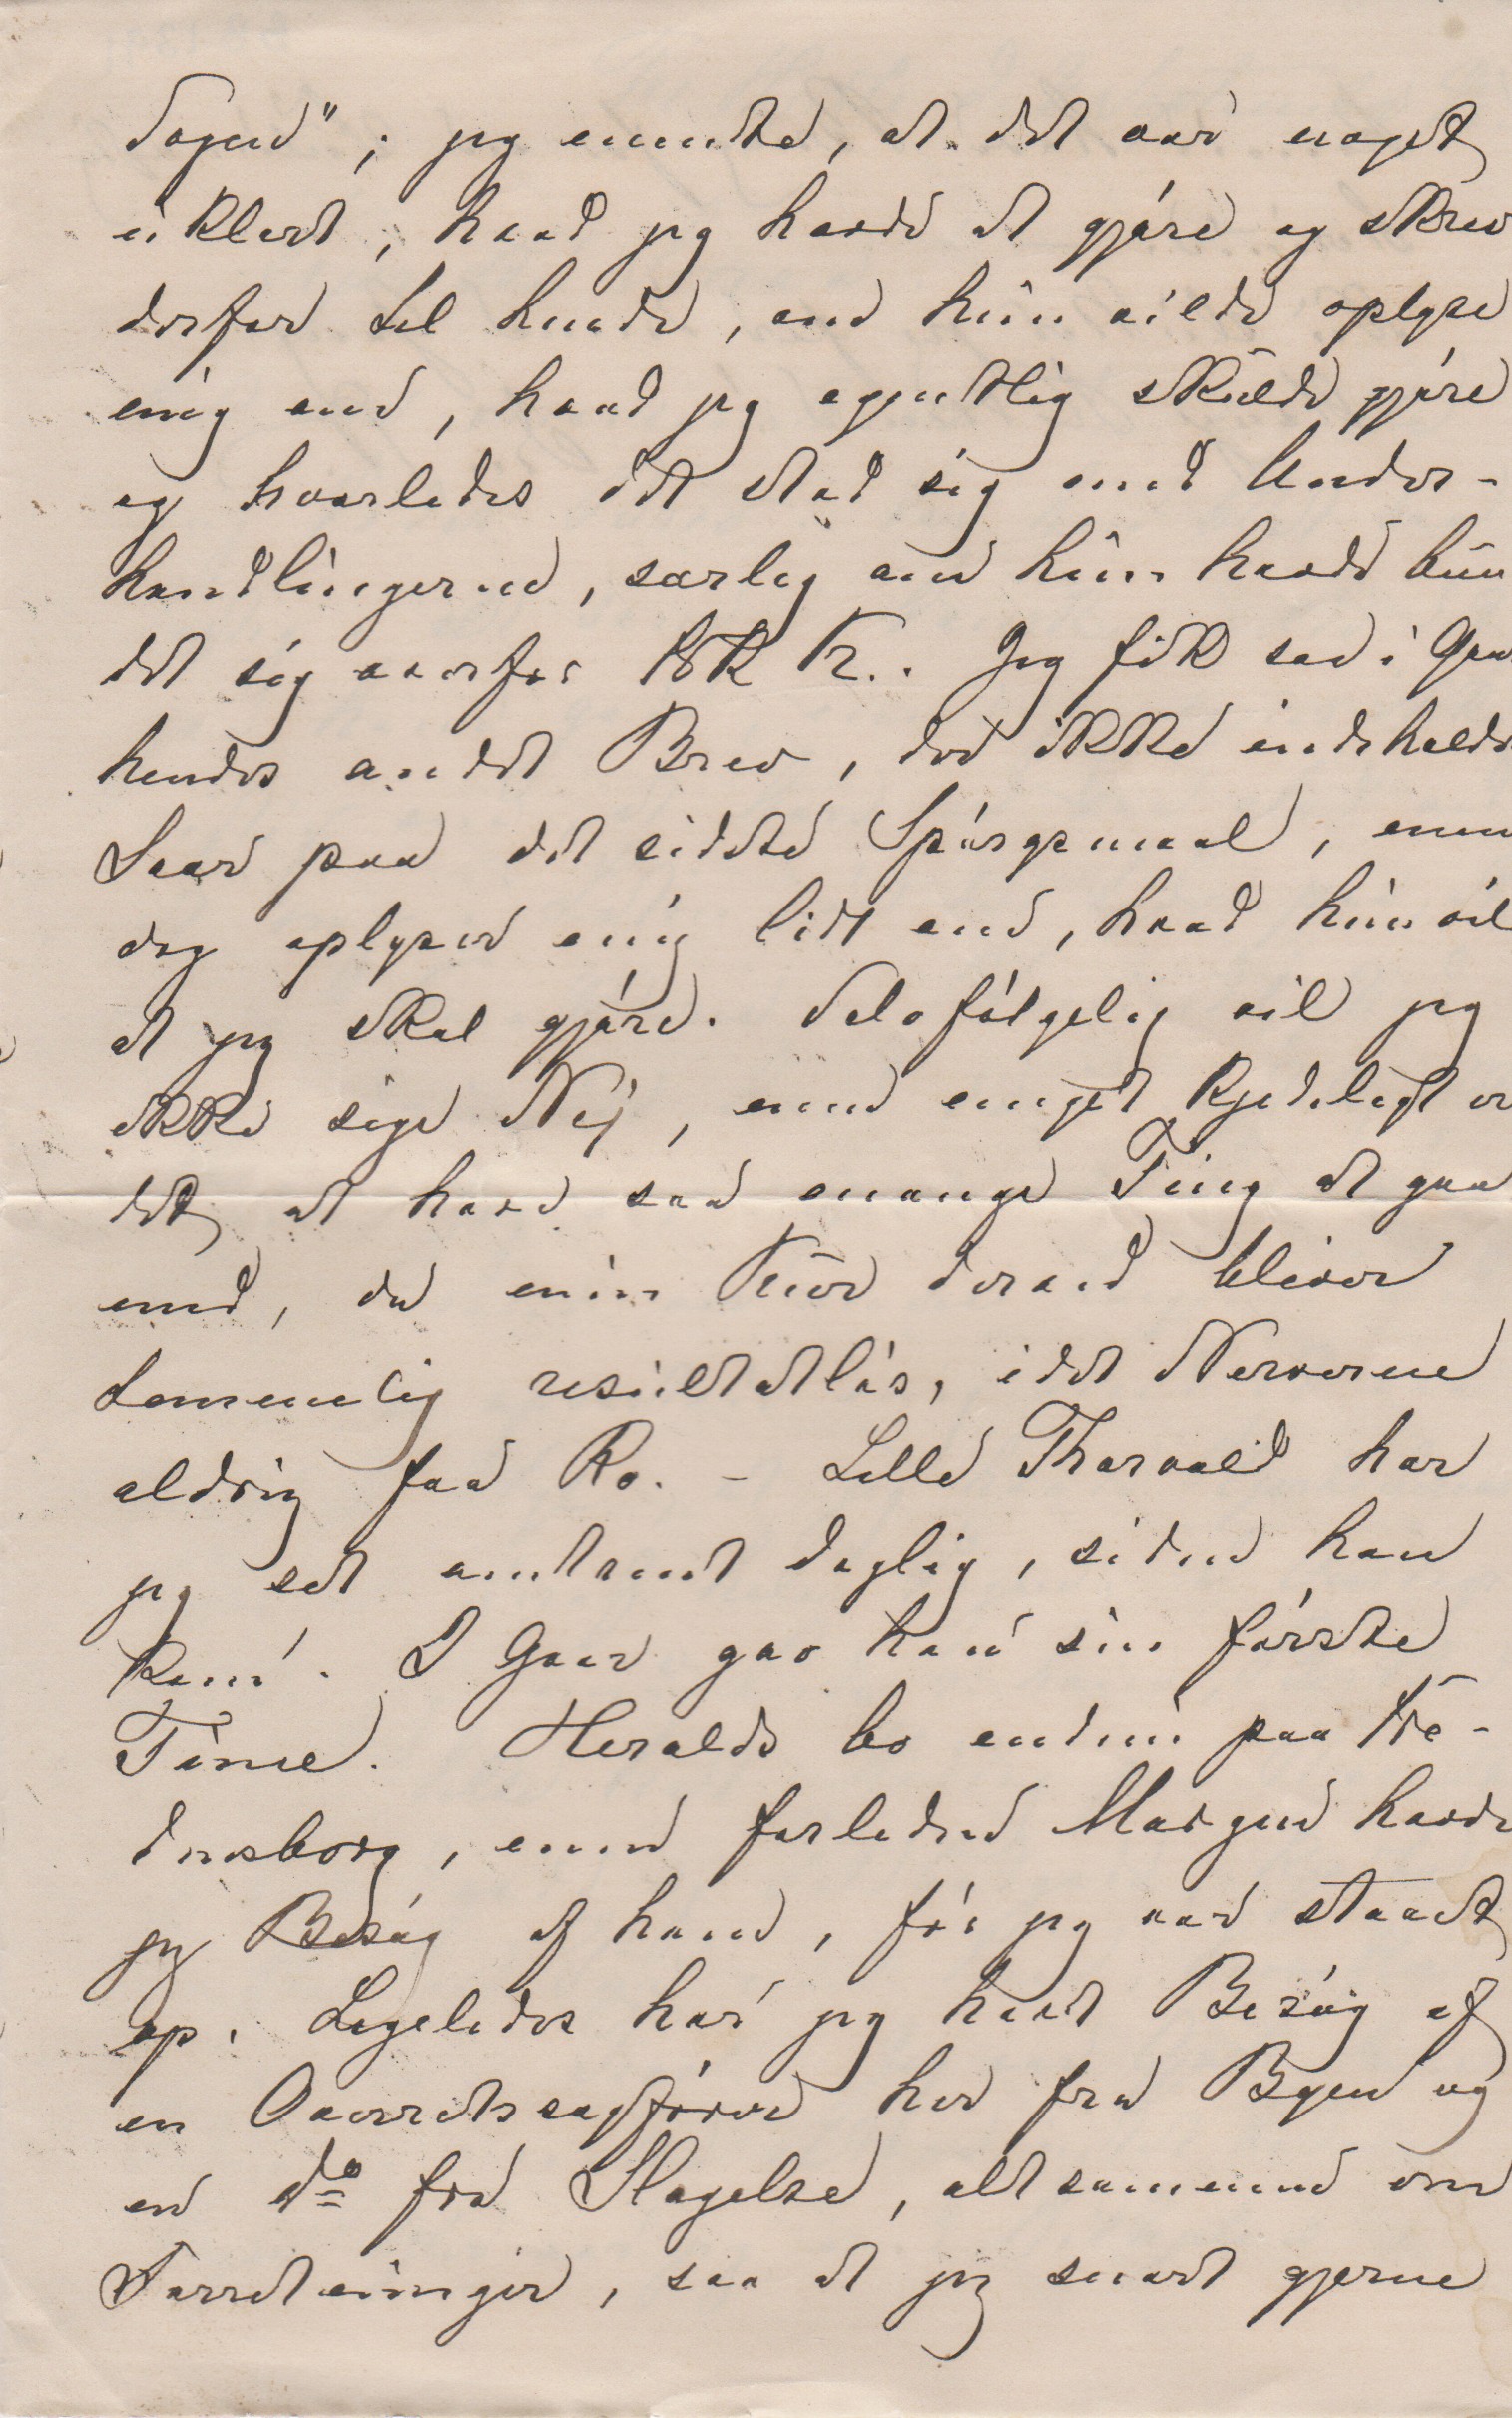 Sagen"; jeg mente, at det var noget
uklart, hvad jeg havde at gjøre og skrev
derfor til hende, om hun vilde oplyse
mig om, hvad jeg egentlig skulde gjøre
og hvorledes det stod sig med Under-
handlingerne, særlig om hun havde bun
det sig overfor Kr.. Jeg fik saa i Gaar
hendes andet Brev, der ikke indeholdt
Svar paa det sidste Spørgsmaal, men
dog oplyser mig lidt om, hvad hun vil
at jeg skal gjøre. Selvfølgelig vil jeg
ikke sige Nej, men meget kjedeligt er
det at have saa mange Ting at gaa
med, da min Kur derved bliver
temmelig resultatløs, idet Nerverne
aldrig faa Ro. - Lille Thorvald har
jeg set omtrent daglig, siden han
kom. I Gaar gav han sin første
Time. Haralds bo endnu paa Fre-
densborg, men forleden Morgen havde
jeg Besøg af ham, før jeg var staaet
op. Ligeledes har jeg havt Besøg af
en Overretssagfører her fra Byen og
en do fra Slagelse, altsammen om
Forretninger, saa at jeg snart gjerne